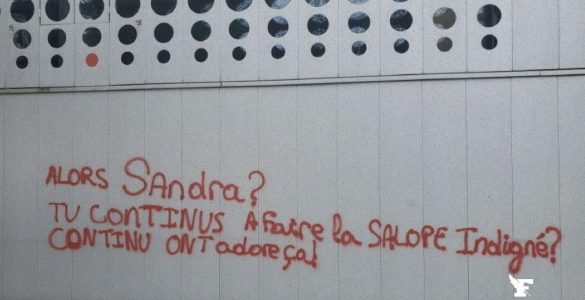 ALORS SAndra?
TU CONTINUS A Faire la SALOPE Indigné?
CONTINU ONT adore ça!